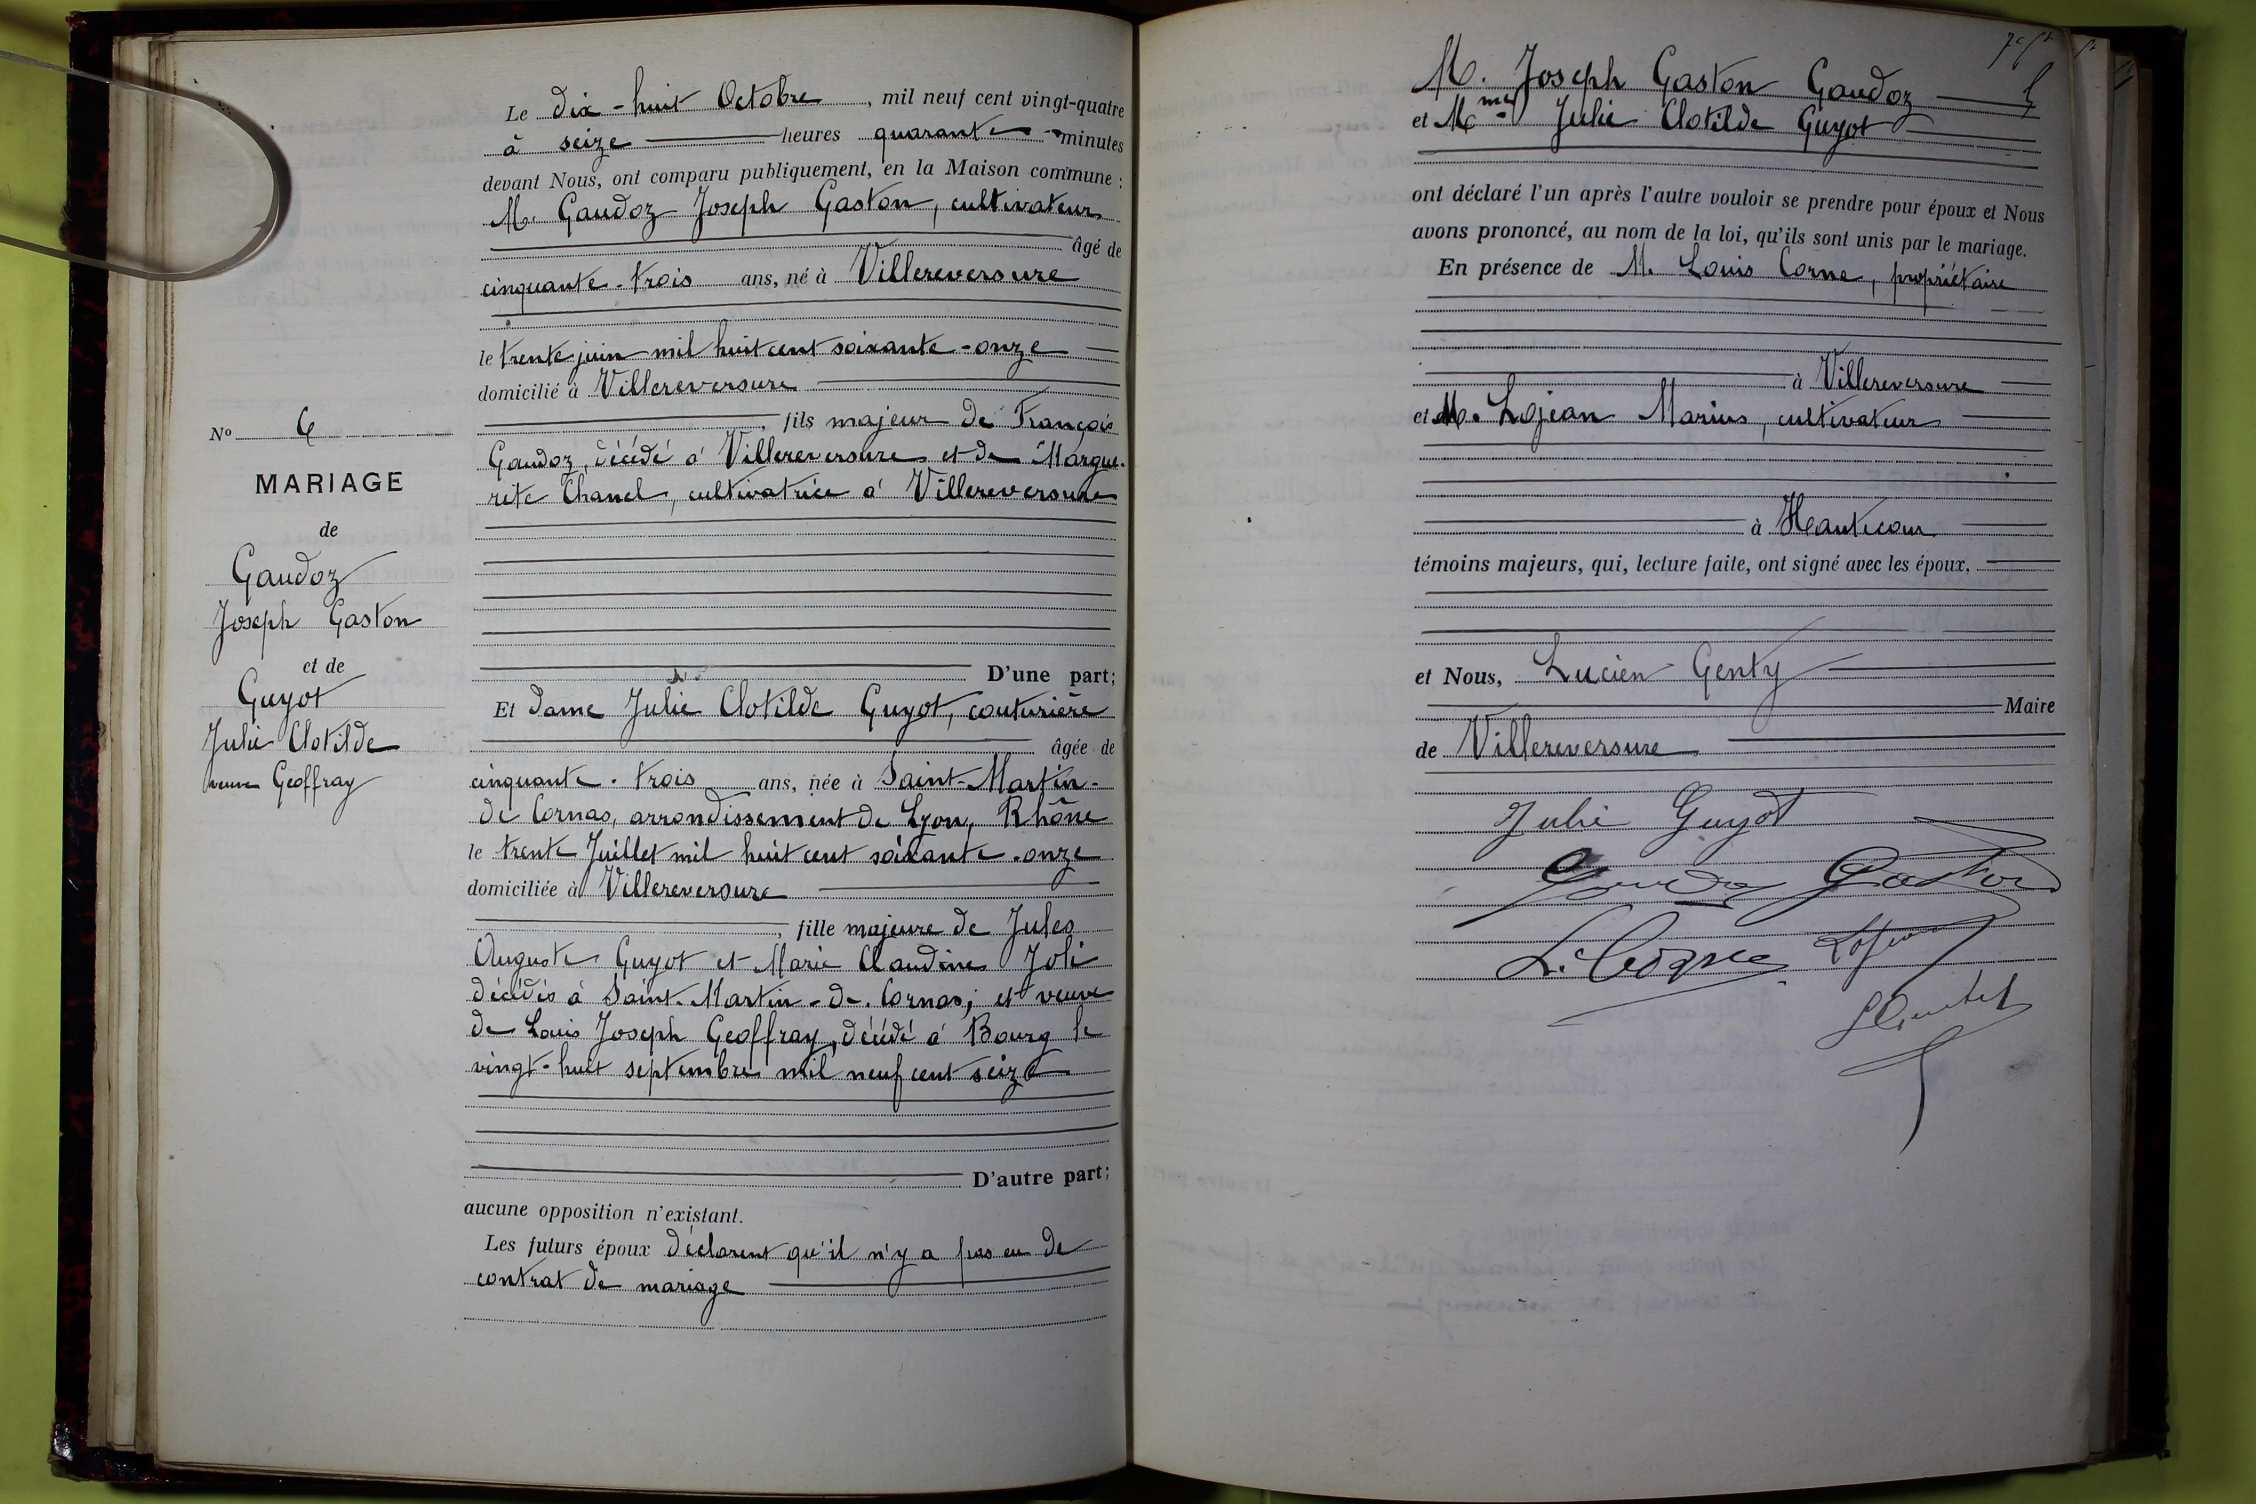 Le dix-huit Octobre, mil neuf cent vingt-quatre
à seize heures quarante minutes
devant Nous, ont comparu publiquement, en la Maison commune :
M. Gaudoz Joseph Gaston, cultivateur
âgé de
cinquante-trois ans, né à Villereversure
le trente juin mil huit cent soixante-onze
domicilié à Villereversure
, fils majeur de François
Gaudoz, décédé à Villereversure et de Margue-
rite Chanel, cultivatrice à Villereversure
D'une part;
Et dame Julie Clotilde Guyot, couturière
âgée de
cinquante-trois ans, née à Saint-Martin-
de Cornas, arrondissement de Lyon, Rhône
le trente Juillet mil huit cent soixante-onze
domiciliée à Villereversure
, fille majeure de Jules
Auguste Guyot et Marie Claudine Joli
décédés à Saint-Martin-de-Cornas; et veuve
de Louis Joseph Geoffray, décédé à Bourg le
vingt-huit septembre mil neuf cent seize
D'autre part;
aucune opposition n'existant.
Les futurs époux déclarent qu'il n'y a pas eu de
contrat de mariage
No 6
MARIAGE
de
Gaudoz
Joseph Gaston
et de
Guyot
Julie Clotilde
veuve Geoffray
M. Joseph Gaston Gaudoz
et Mme Julie Clotilde Guyot
ont déclaré l'un après l'autre vouloir se prendre pour époux et Nous
avons prononcé, au nom de la loi, qu'ils sont unis par le mariage.
En présence de M. Louis Corne, propriétaire
à Villereversure
et M. Lojean Marius, cultivateur
à Hautecour
témoins majeurs, qui, lecture faite, ont signé avec les époux,
et Nous, Lucien Genty
Maire
de Villereversure
Julie Guyot
Gaudoz Gaston